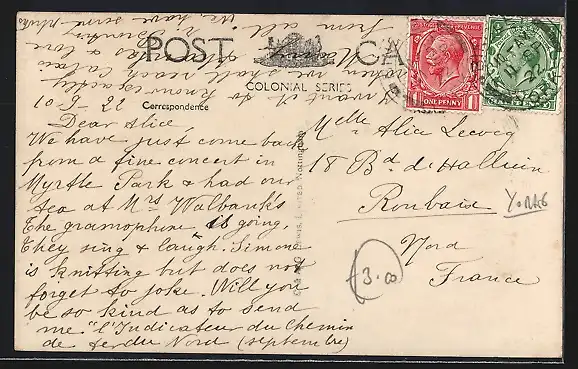 POST CARD
COLONIAL SERIES
Correspondence
10-9-22
Dear Alice,
We have just come back
from a fine concert in
Myrtle Park & had our
tea at Mrs Walbank's
The gramophone is going,
They sing & laugh. Simone
is knitting but does not
forget to joke. Will you
be so kind as to send
me "l'Indicateur du Chemin
de fer du Nord (septembre)
I want it to know exactly
when we shall reach Calais
from all
We have some
ONE PENNY
Melle Alice Lecocq
18 Bd d'Halluin
Roubaix
Nord
France
YORKS
£3.00